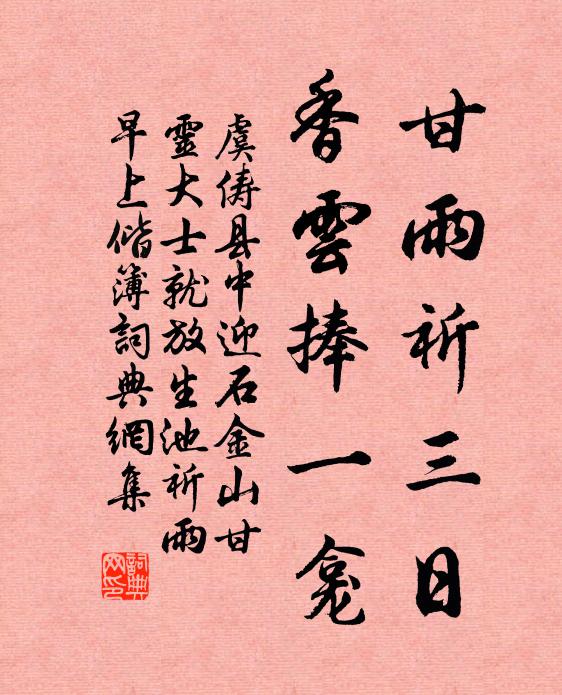 甘雨祈三日
香雲捧一龛
虞俦县中迎石金山甘
靈大士就放生池祈雨
早上偕簿詞典網集
詞典网印